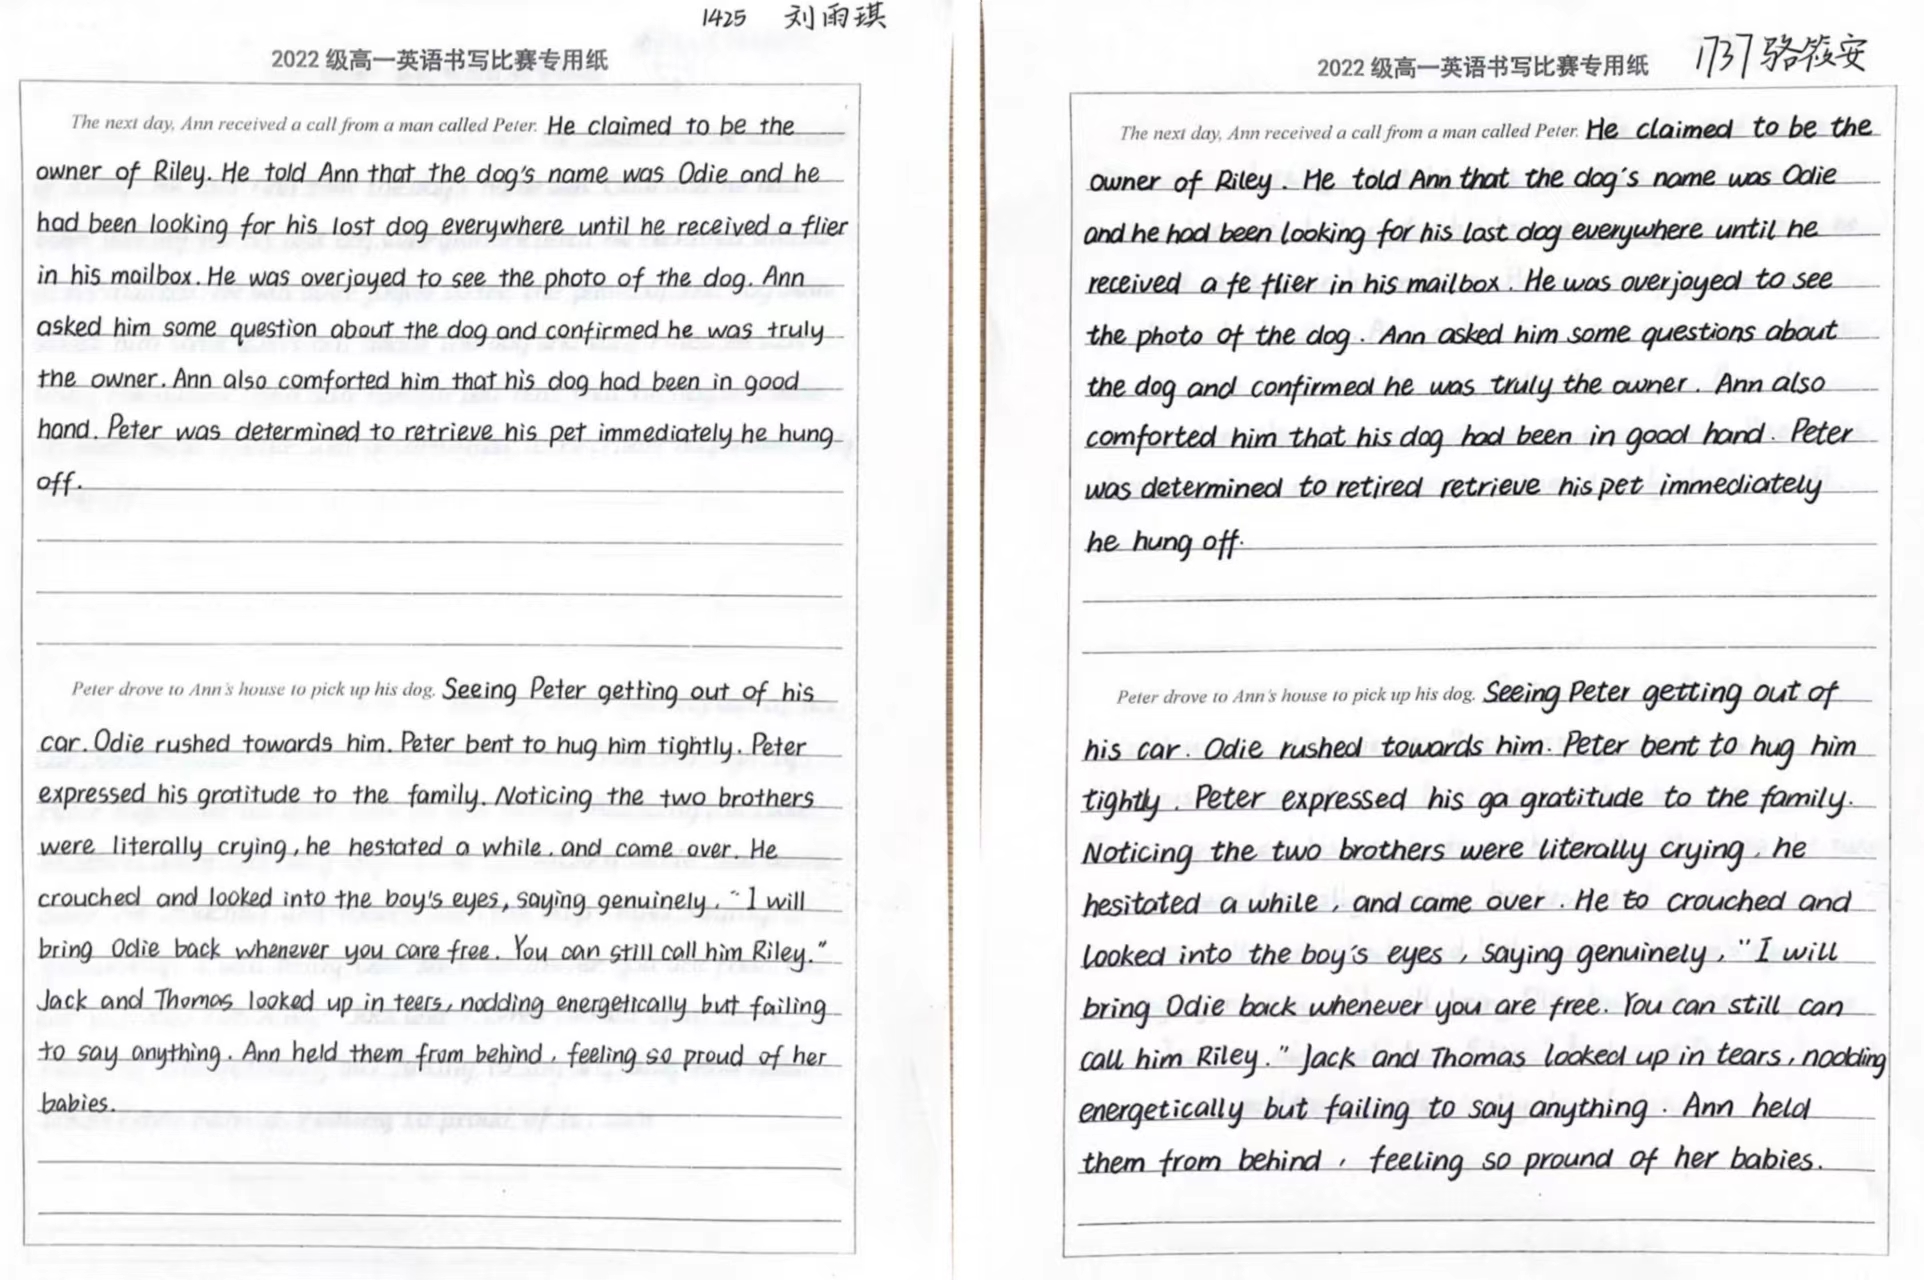 1425 刘雨琪
2022 级高一英语书写比赛专用纸
The next day, Ann received a call from a man called Peter. He claimed to be the
owner of Riley. He told Ann that the dog's name was Odie and he
had been looking for his lost dog everywhere until he received a flier
in his mailbox. He was overjoyed to see the photo of the dog. Ann
asked him some question about the dog and confirmed he was truly
the owner. Ann also comforted him that his dog had been in good
hand. Peter was determined to retrieve his pet immediately he hung
off.
Peter drove to Ann's house to pick up his dog. Seeing Peter getting out of his
car. Odie rushed towards him. Peter bent to hug him tightly. Peter
expressed his gratitude to the family. Noticing the two brothers
were literally crying, he hestated a while, and came over. He
crouched and looked into the boy's eyes, saying genuinely, "I will
bring Odie back whenever you care free. You can still call him Riley."
Jack and Thomas looked up in teers, nodding energetically but failing
to say anything. Ann held them from behind, feeling so proud of her
babies.
1737 骆筱安
2022 级高一英语书写比赛专用纸
The next day, Ann received a call from a man called Peter. He claimed to be the
owner of Riley. He told Ann that the dog's name was Odie
and he had been looking for his lost dog everywhere until he
received a fe flier in his mailbox. He was overjoyed to see
the photo of the dog. Ann asked him some questions about
the dog and confirmed he was truly the owner. Ann also
comforted him that his dog had been in good hand. Peter
was determined to retired retrieve his pet immediately
he hung off.
Peter drove to Ann's house to pick up his dog. Seeing Peter getting out of
his car. Odie rushed towards him. Peter bent to hug him
tightly. Peter expressed his ga gratitude to the family.
Noticing the two brothers were literally crying, he
hesitated a while, and came over. He to crouched and
looked into the boy's eyes, saying genuinely, "I will
bring Odie back whenever you are free. You can still can
call him Riley." Jack and Thomas looked up in tears, nodding
energetically but failing to say anything. Ann held
them from behind, feeling so pround of her babies.